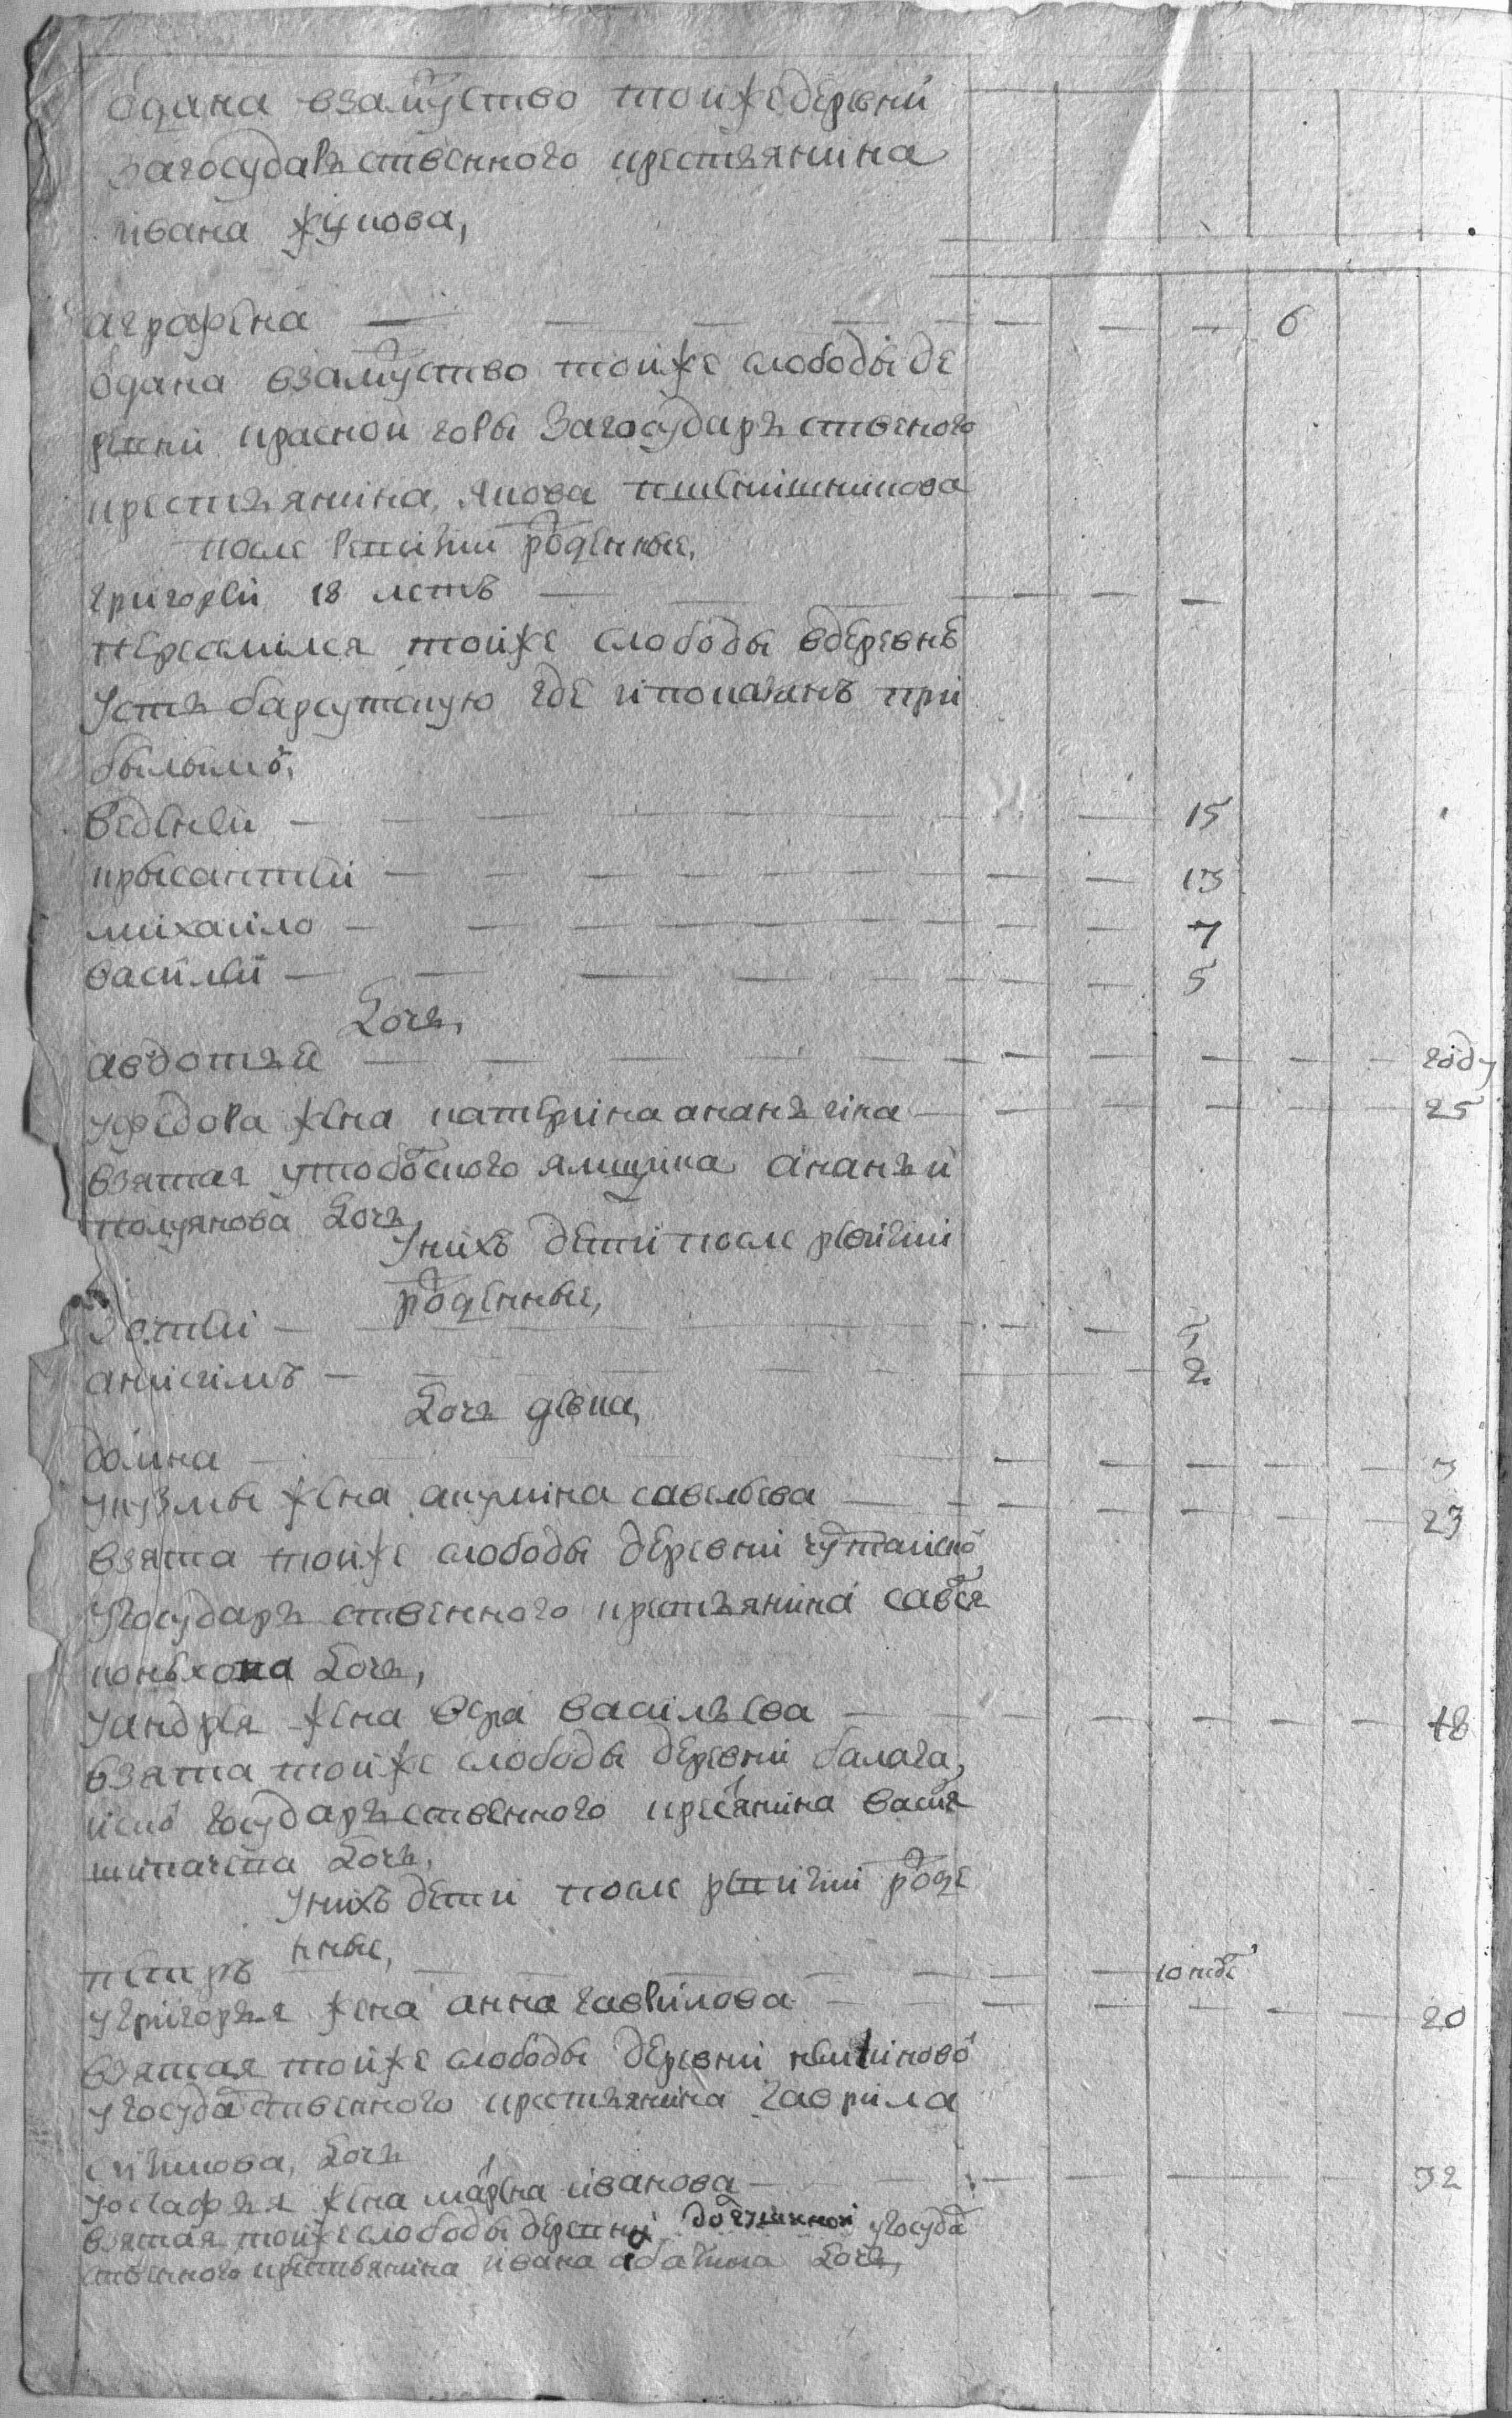 одана взамуство тойже деревни
загосударственного крестьянина
ивана жукова,
аграфена 6
одана взамуство тойже слободы де
ревни красной горы загосударственого
крестьянина, якова
после ревизии роденные,
григореи 18 летъ
переселился тойже слободы вдеревнѣ
усть барсутскую где ипоказанъ при
былымъ,
веденеи 15
крысантеи 13
михаило 7
василеи 5
дочь,
авдотья году
уфедора жена катерина ананьина 25
взятая утобоского ямщика ананьи
полуянова дочь,
унихъ дети после ревизии
роденные,
зотеи 5
анисимъ 2
дочь девка,
домна 3
укузмы жена акулина савельева 23
взята тойже слободы деревни
угосударственного крестьянина савелья
конюхова дочь,
уандрея жена вера васильева 18
взята тойже слободы деревни балага,
нскои государственного крестьянина василья
дочь,
унихъ дети после ревизии роде
нные,
петръ 10 недель
угригорья жена анна гаврилова 20
взятая тойже слободы деревни
угосударственного крестьянина гаврила
дочь
уостафья жена марина иванова 32
взятая тойже слободы деревни угосудар
ственного крестьянина ивана дочь,